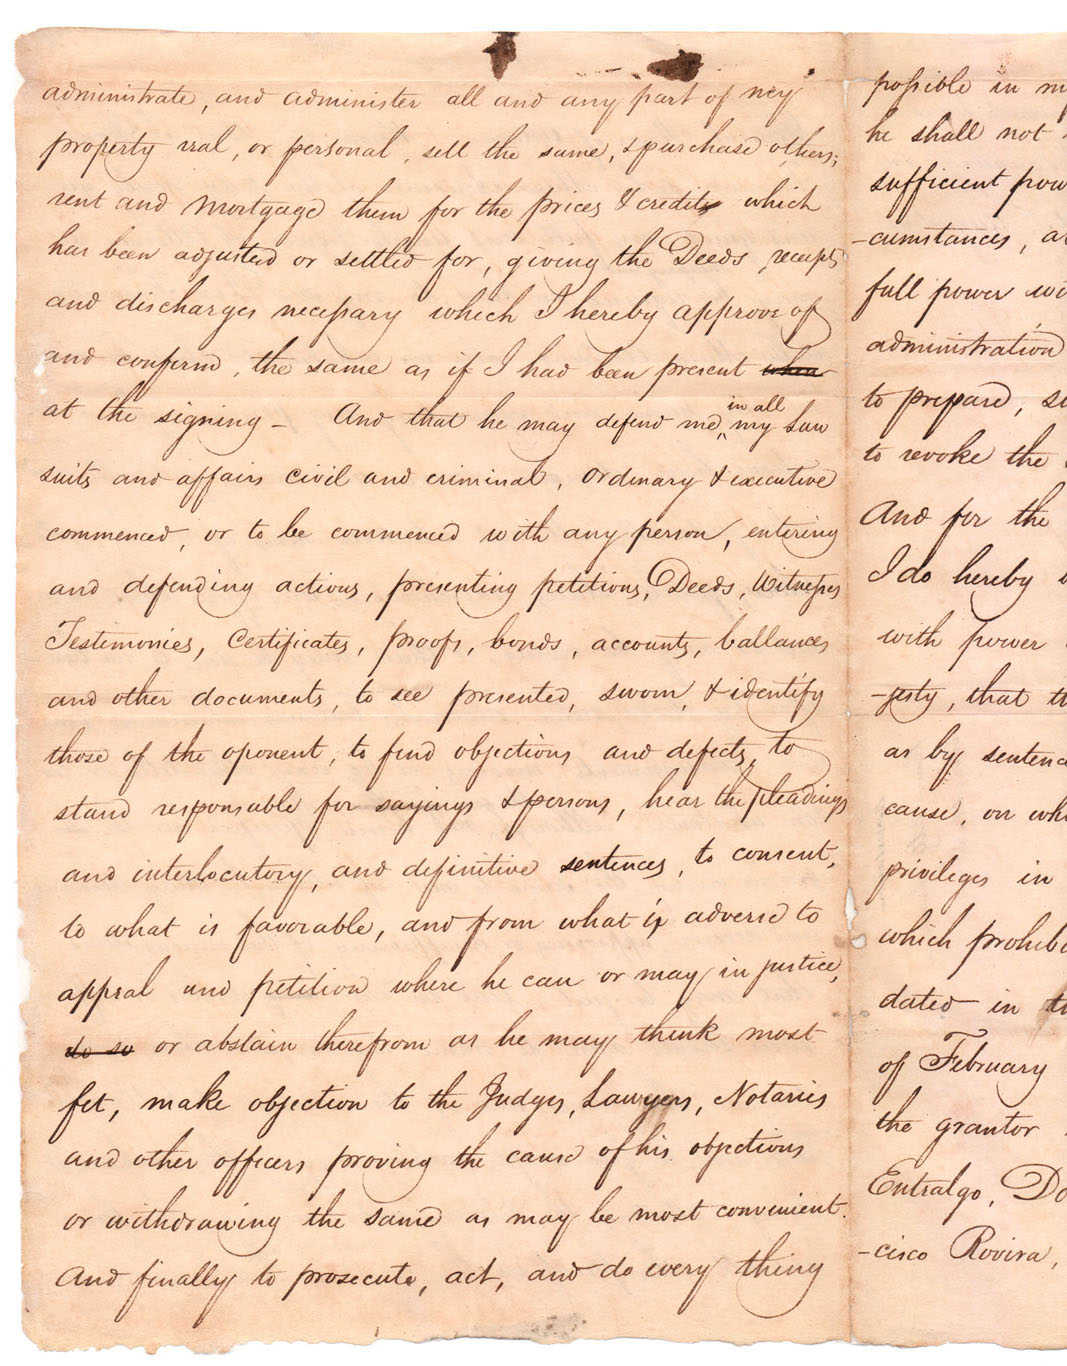 administrate, and administer all and any part of my
property real, or personal, sell the same, & purchase others;
rent and mortgage them for the prices & credits which
has been adjusted or settled for, giving the Deeds, receipts
and discharges necessary which I hereby approve of
and confirm, the same as if I had been present when
at the signing - And that he may defend me, in all my Law
suits and affairs civil and criminal, ordinary & executive
commenced, or to be commenced with any person, entering
and defending actions, presenting petitions, Deeds, Witnesses
Testimonies, Certificates, proofs, bonds, accounts, ballances
and other documents, to see presented, sworn, & identify
those of the oponent, to find objections and defects, to
stand responsable for sayings & persons, hear the pleadings
and interlocutory, and definitive sentences, to consent,
to what is favorable, and from what is adverse to
appeal and petition where he can or may in justice,
do so or abstain therefrom as he may think most
fit, make objection to the Judges, Lawyers, Notaries
and other officers proving the cause of his objections
or withdrawing the same as may be most convenient.
And finally to prosecute, act, and do every thing
possible in my
he shall not
sufficient pow
-cumstances, a
full power wi
administration
to prepare, su
to revoke the
And for the
I do hereby
with power
-jesty, that th
as by sentenc
cause, on whi
privileges in
which prohibi
dated in t
of February
the grantor
Entralgo, Do
-cisco Rovira,